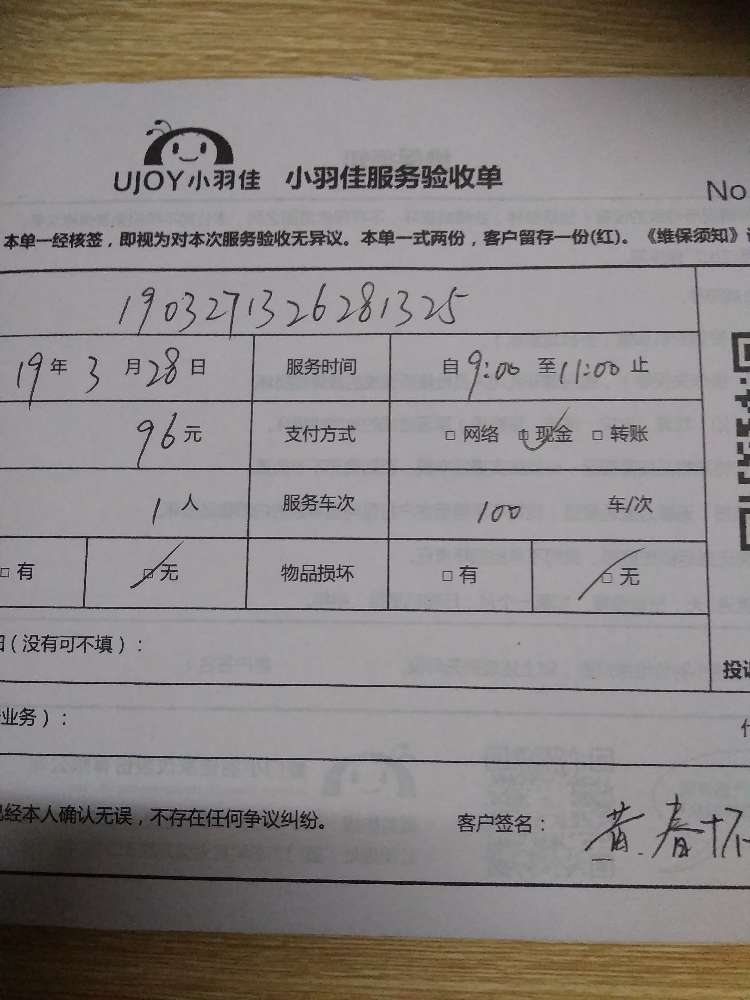 UJOY小羽佳 小羽佳服务验收单
No
本单一经核签，即视为对本次服务验收无异议。本单一式两份，客户留存一份(红)。《维保须知》
1903271326281325
19年3月28日 服务时间 自9:00至11:00止
96元 支付方式 □网络 □现金 □转账
1人 服务车次 100 车/次
□有 □无 物品损坏 □有 □无
(没有可不填)：
业务)：
投诉
已经本人确认无误，不存在任何争议纠纷。 客户签名：黄春怀